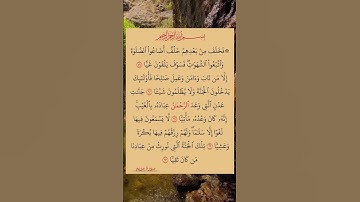 بسم الله الرحمن الرحيم
۞ فَخَلَفَ مِنۢ بَعْدِهِمْ خَلْفٌ أَضَاعُوا۟ ٱلصَّلَوٰةَ
وَٱتَّبَعُوا۟ ٱلشَّهَوَٰتِ ۖ فَسَوْفَ يَلْقَوْنَ غَيًّا
إِلَّا مَن تَابَ وَءَامَنَ وَعَمِلَ صَٰلِحًا فَأُو۟لَٰٓئِكَ
يَدْخُلُونَ ٱلْجَنَّةَ وَلَا يُظْلَمُونَ شَيْـًٔا جَنَّٰتِ
عَدْنٍ ٱلَّتِى وَعَدَ ٱلرَّحْمَٰنُ عِبَادَهُۥ بِٱلْغَيْبِ ۚ
إِنَّهُۥ كَانَ وَعْدُهُۥ مَأْتِيًّا لَّا يَسْمَعُونَ فِيهَا
لَغْوًا إِلَّا سَلَٰمًا ۖ وَلَهُمْ رِزْقُهُمْ فِيهَا بُكْرَةً
وَعَشِيًّا تِلْكَ ٱلْجَنَّةُ ٱلَّتِى نُورِثُ مِنْ عِبَادِنَا
مَن كَانَ تَقِيًّا